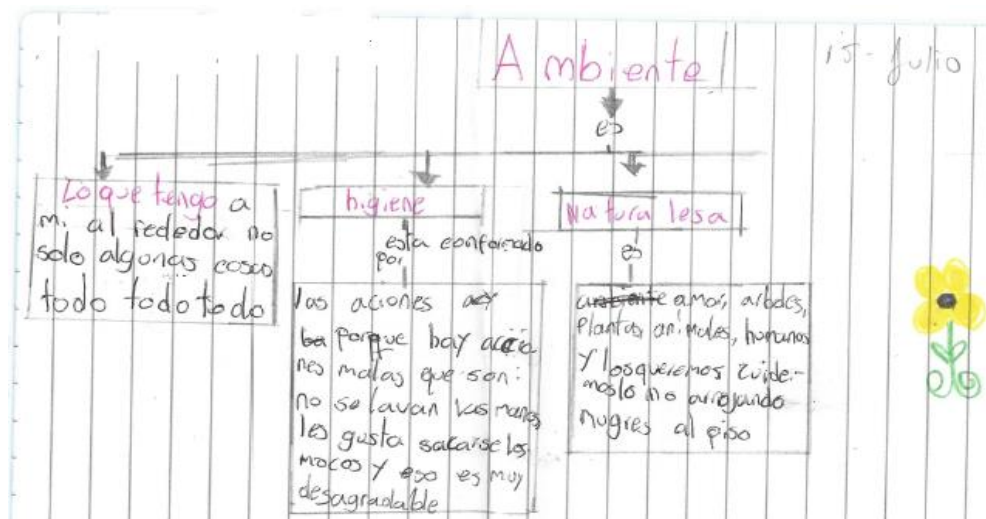 Ambiente
15 - Julio
es
Lo que tengo a
mi al rededor no
solo algunas cosas
todo todo todo
higiene
esta conformado
por
las aciones
porque hay accio
nes malas que son:
no se lavan las manos,
les gusta sacarse los
mocos y eso es muy
desagradable
Naturalesa
es
amor, arboles,
Plantas, animales, humanos
y los queremos cuide-
moslo no arrojando
mugres al piso